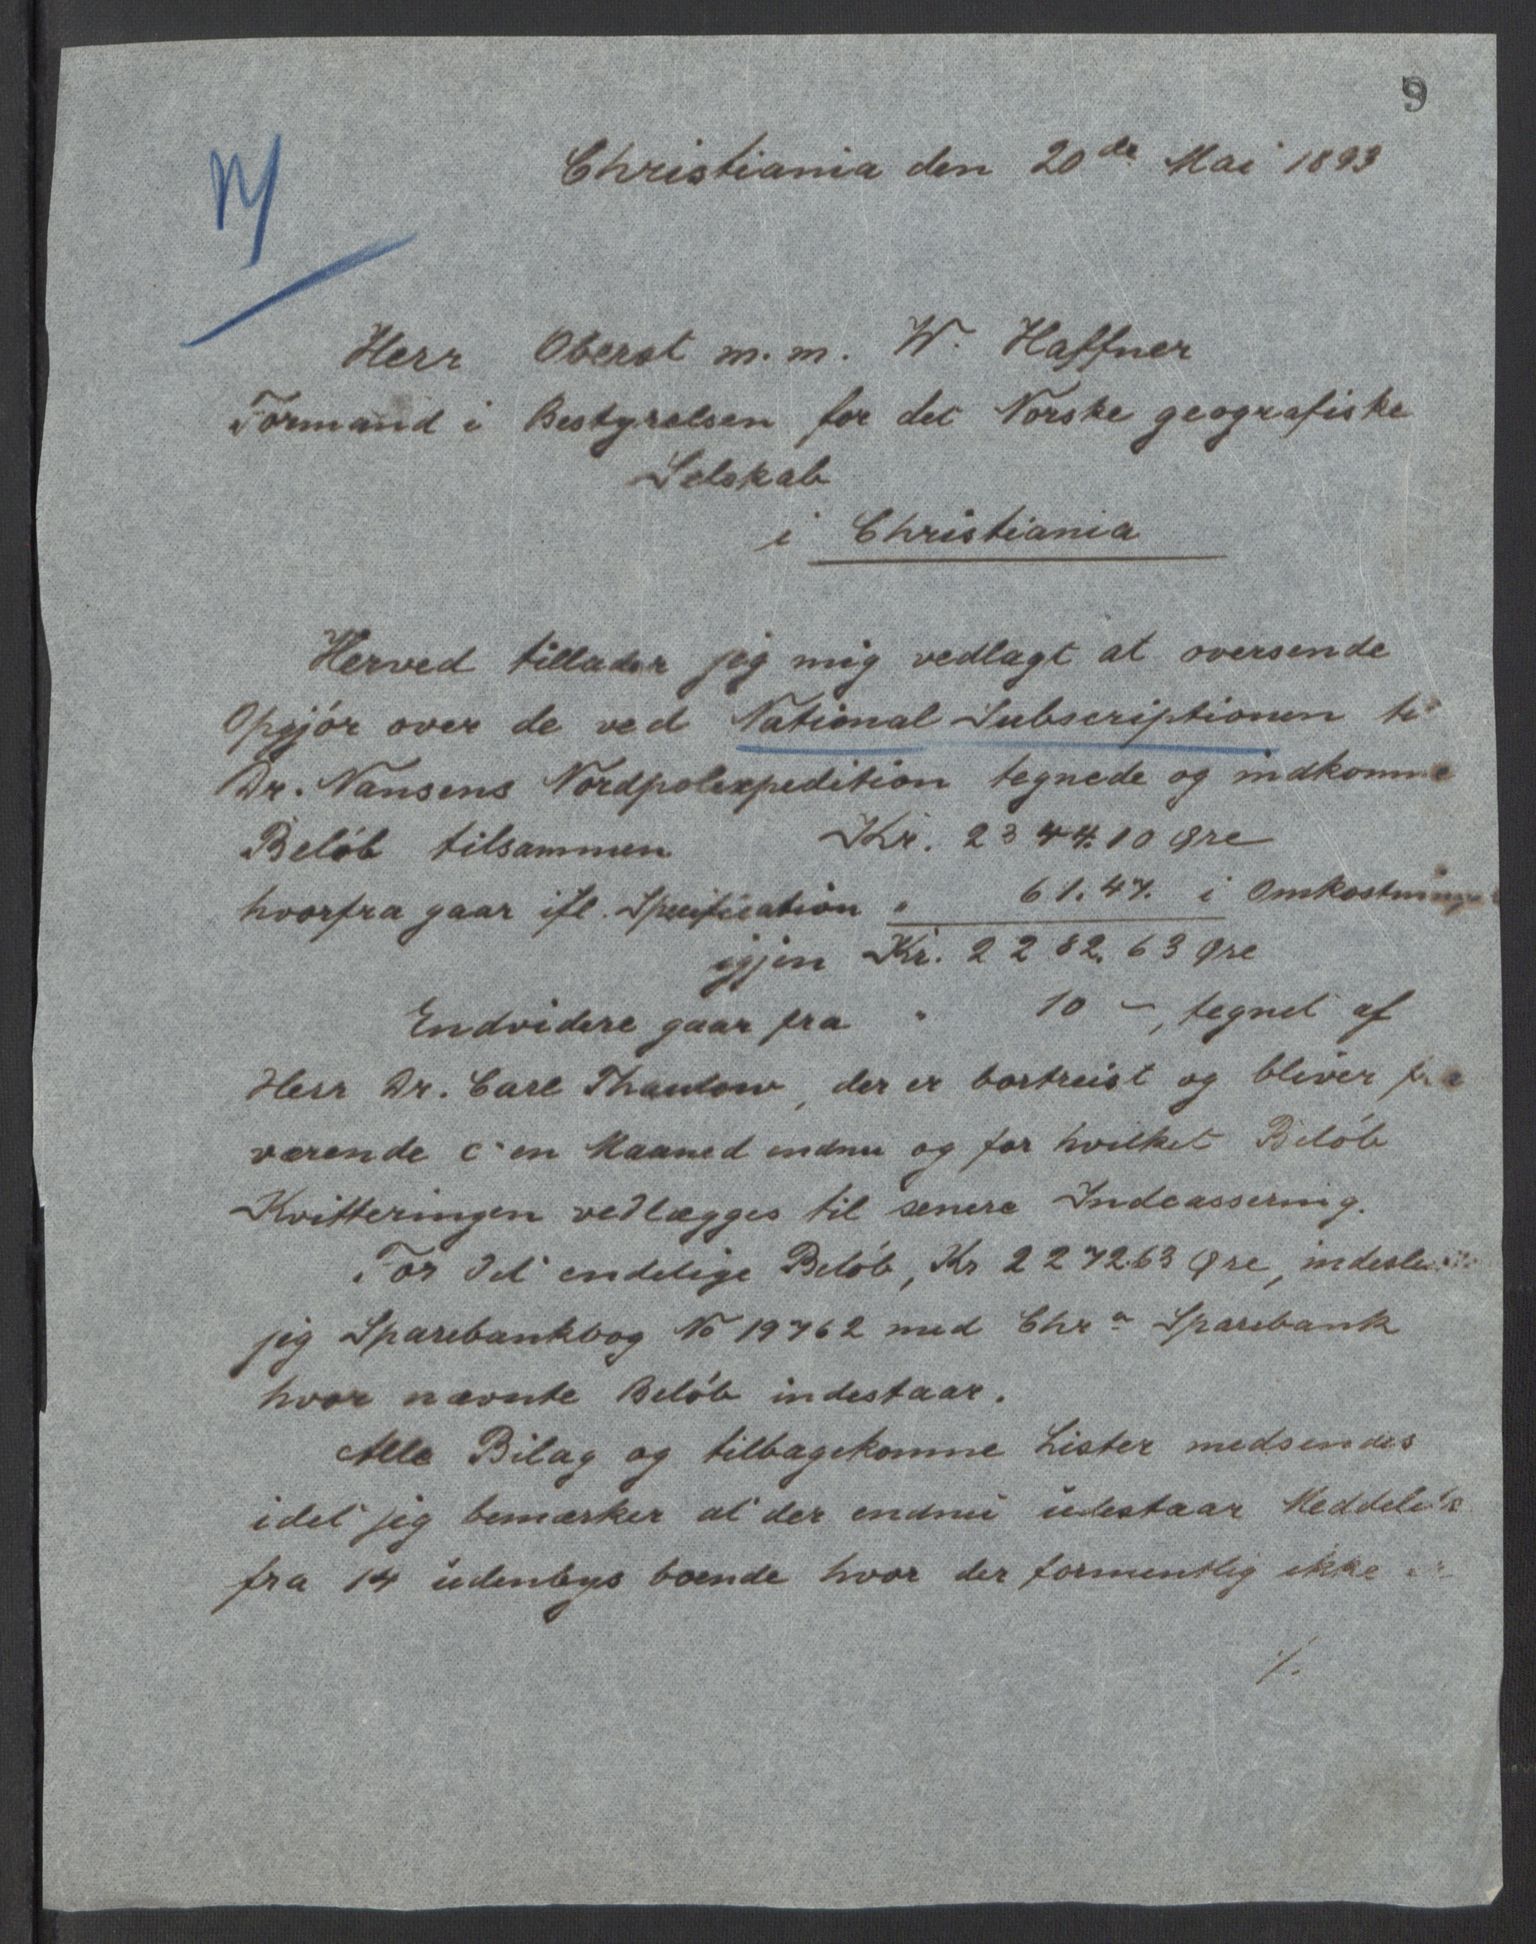 9
Christiania den 20de Mai 1893
Herr Oberst m.m. W. Haffner
Formand i Bestyrelsen for det Norske geografiske
Selskab
i Christiania
Herved tillader jeg mig vedlagt at oversende
Opgjør over de ved National Subscriptionen
Dr. Nansens Nordpolexpedition tegnede og indkomne
Beløb tilsammen Kr. 2344.10 Øre
hvorfra gaar ifl. Specification " 61.47. i Omkostninger
igjen Kr. 2282.63 Øre
Endvidere gaar fra " 10 –, tegnet af
Herr Dr. Carl Thaulow, der er bortreist og bliver fra
værende en Maaned endnu og for hvilket Beløb
Kvitteringen vedlægges til senere Indcassering.
For det endelige Beløb, Kr 2272.63 Øre,
jeg Sparebankbog No 19762 med Chra Sparebank
hvor nævnte Beløb indestaar.
Alle Bilag og tilbagekomne Lister medsendes
idet jeg bemærker at der endnu udestaar
fra 14 udenbys boende hvor der formentlig ikke
./.